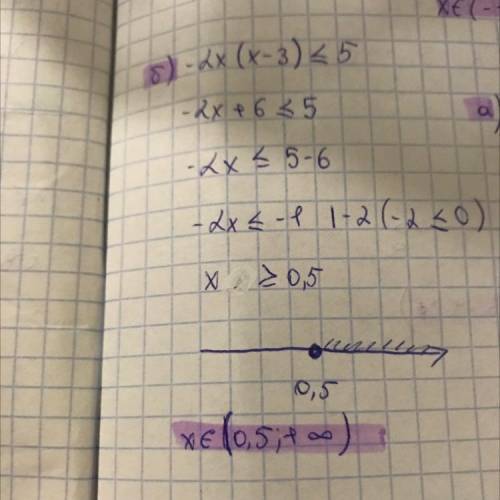 x∈(-
б) -2x(x-3)≤5
-2x+6≤5
а)
-2x≤5-6
-2x≤-1 |-2(-2≤0)
x ≥0,5
0,5
x∈(0,5;+∞)